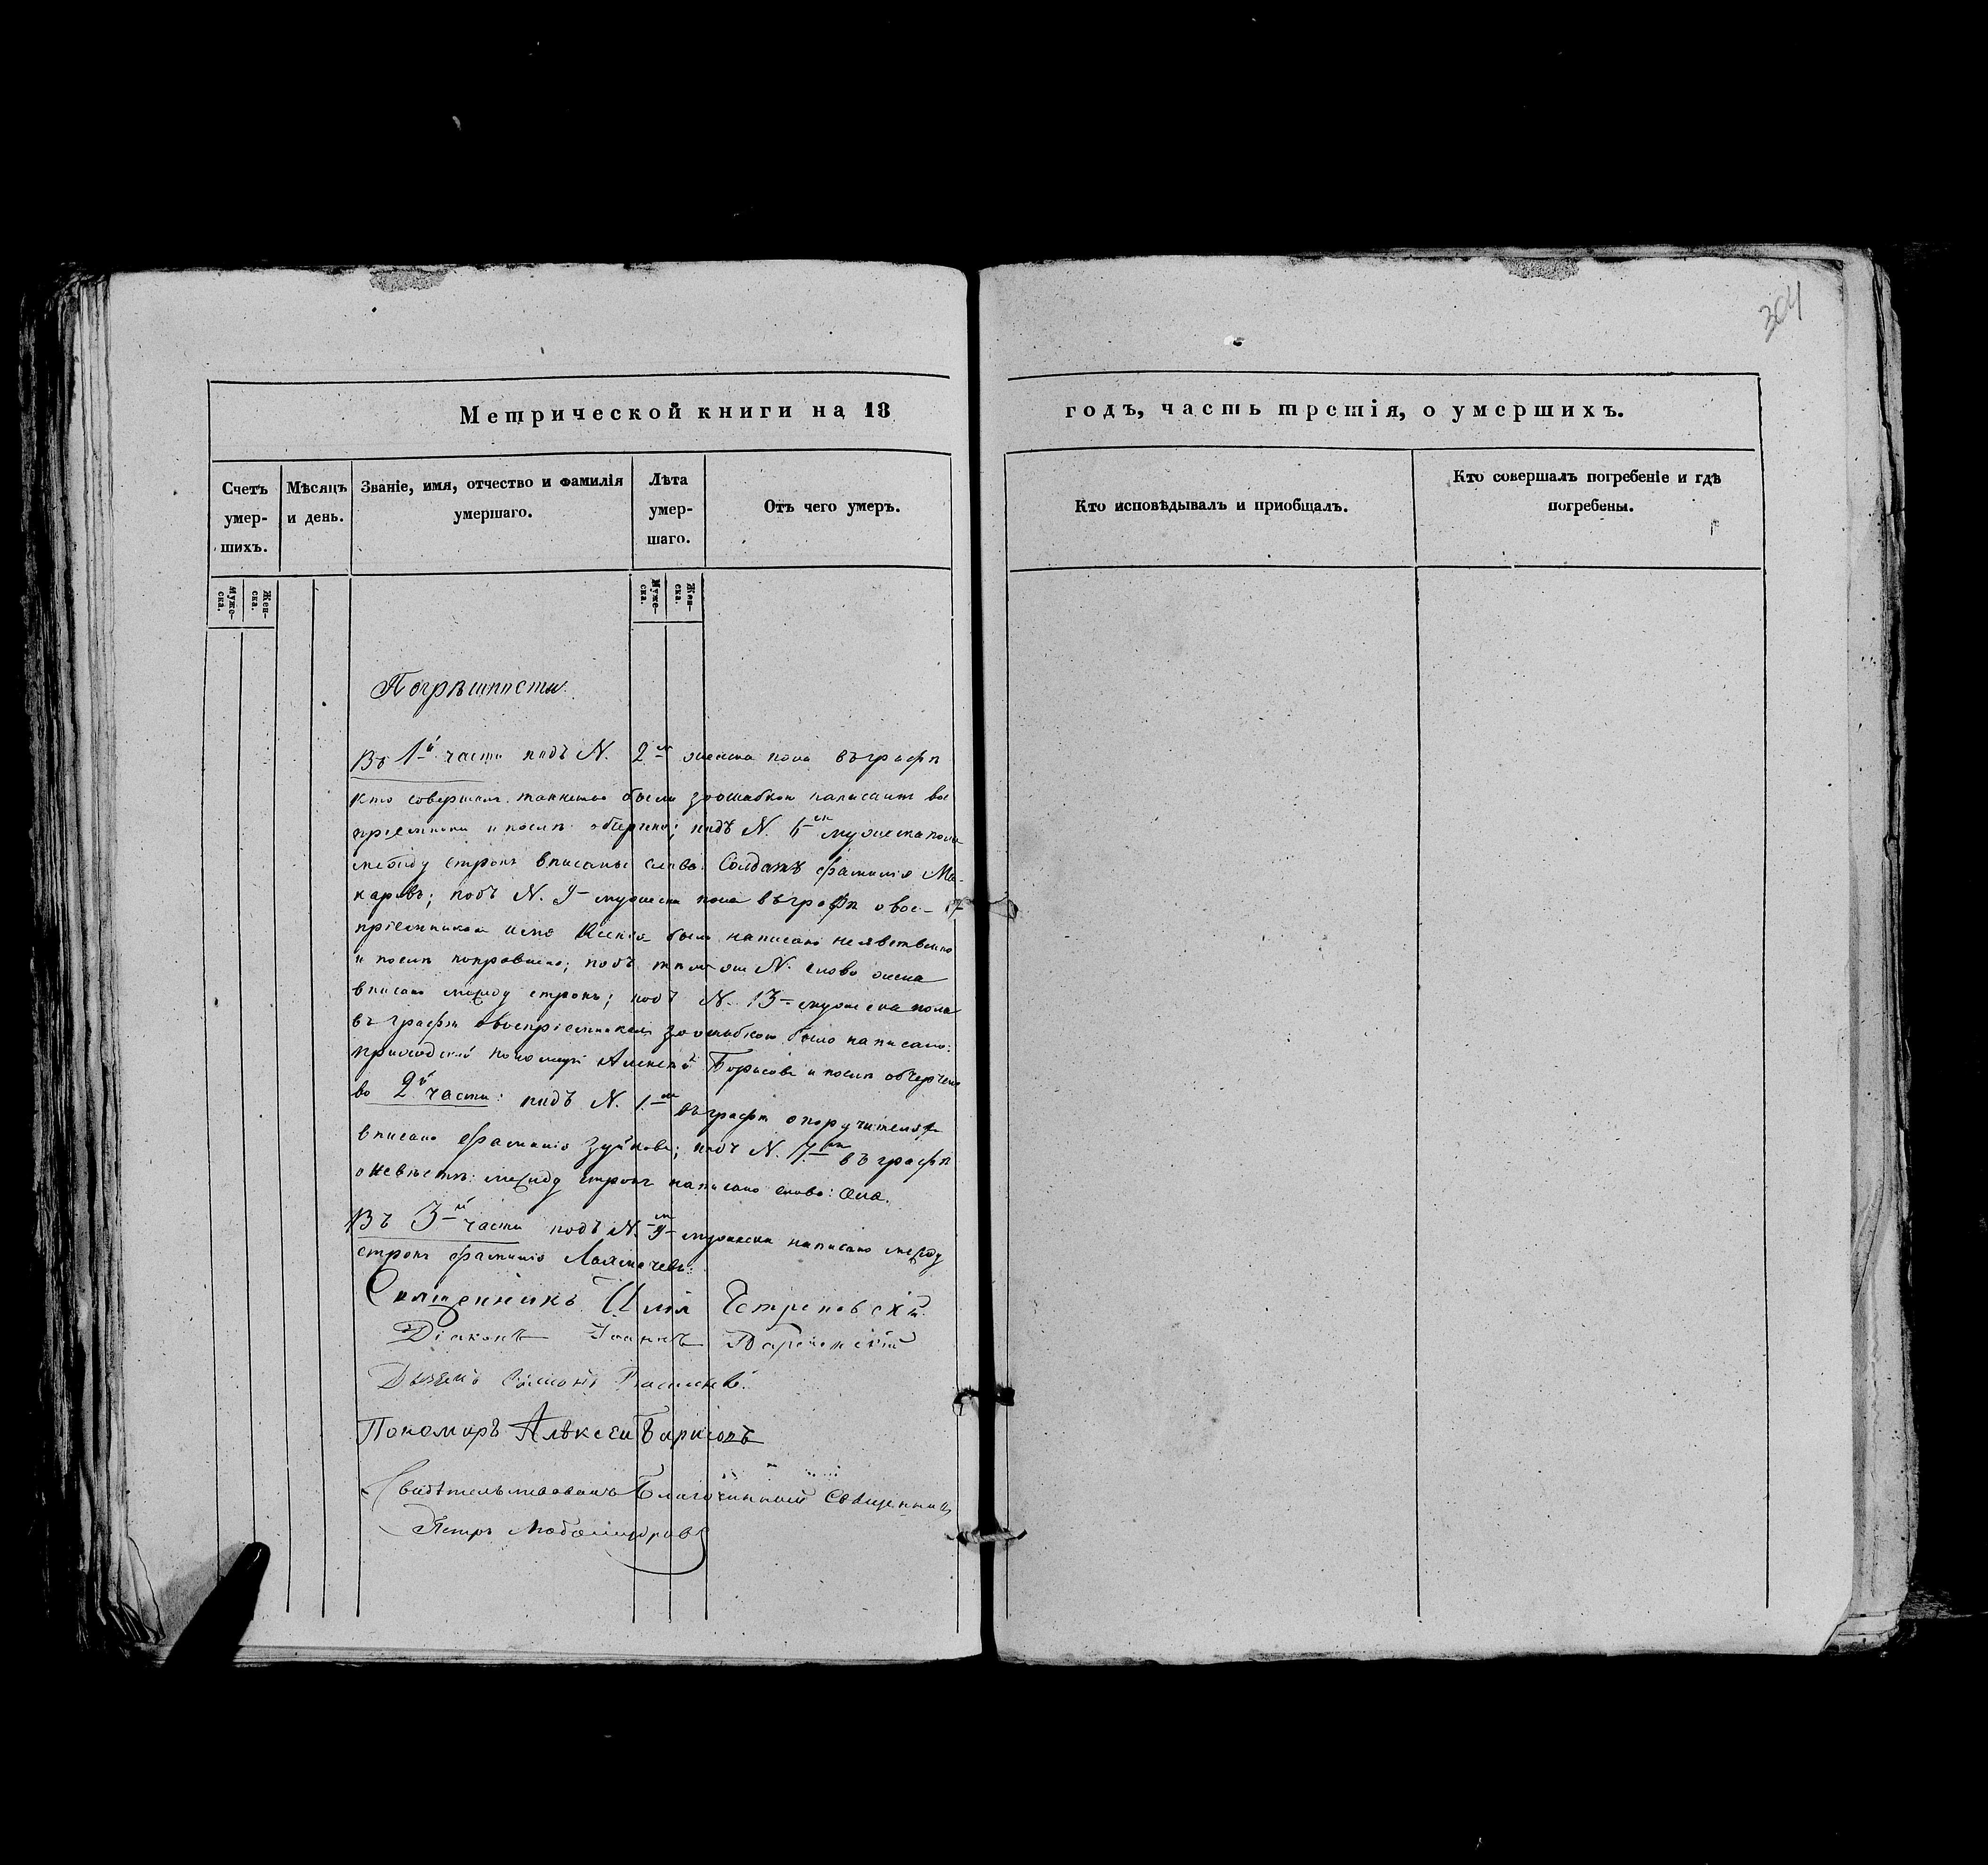 304
Метрической книги на 18
годъ, часть третія, о умершихъ.
Счетъ умер-шихъ.
Мѣсяцъ и день.
Званіе, имя, отчество и фамилія умершаго.
Лѣта умер-шаго.
Отъ чего умеръ.
Кто исповѣдывалъ и приобщалъ.
Кто совершалъ погребеніе и гдѣ погребены.
Муже-ска.
Жен-ска.
Муже-ска.
Жен-ска.
Погрѣшности
Въ 1й части подъ N. 2м женска пола въ графѣ
кто совершалъ таинство были по ошибкѣ написаны вос
пріемники и послѣ обчерчено; подъ N. 6м мужеска пола
между строкъ вписаны слова: Солдатъ фамилія Ма-
каровъ; подъ N. 9 мужеска пола въ графѣ о вос-
пріемникахъ имя Ксенія было написано неявственно
и послѣ поправлено; подъ тѣмъ же N. слово жена
вписано между строкъ; подъ N. 13 мужеска пола
въ графѣ о воспріемникахъ по ошибкѣ было написано:
приходскій пономарь Алексѣй Борисовъ и послѣ обчерчено
во 2й части: подъ N. 1м въ графѣ о поручителяхъ
вписано фамилія Зуйкова; подъ N. 7м въ графѣ
о невѣстѣ: между строкъ написано слово:
Въ 3й части подъ N. 9м мужеска написано между
строкъ фамилія
Священникъ Илія
Діаконъ Іоаннъ
Дьячекъ
Пономарь Алѣксеи Борисовъ
Свидѣтельствовалъ Благочинный Священникъ
Петръ